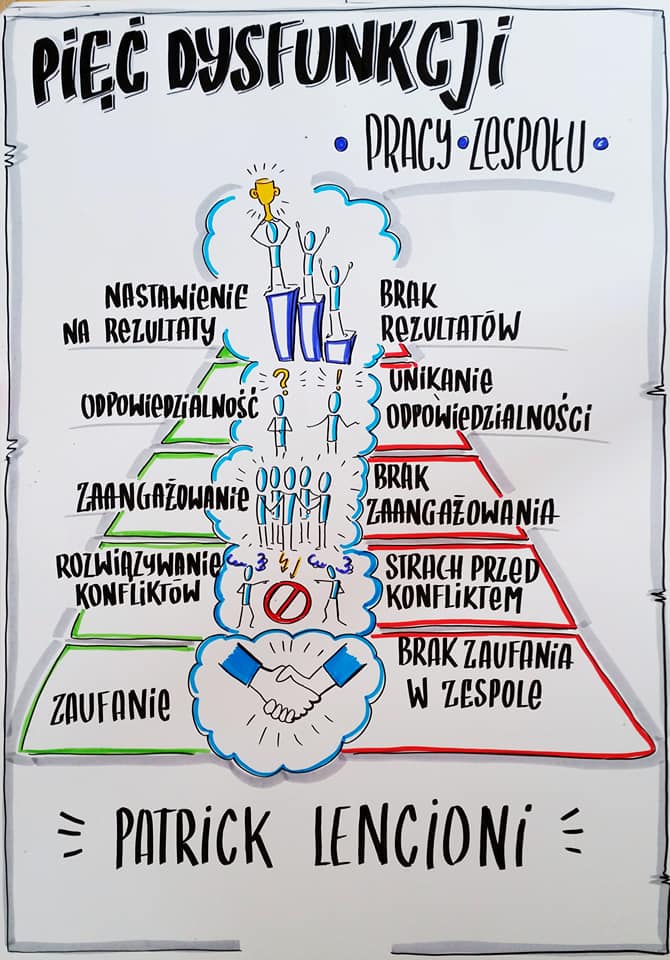 PIĘĆ DYSFUNKCJI
PRACY ZESPOŁU
NASTAWIENIE
NA REZULTATY
BRAK
REZULTATÓW
?
!
ODPOWIEDZIALNOŚĆ
UNIKANIE
ODPOWIEDZIALNOŚCI
ZAANGAŻOWANIE
BRAK
ZAANGAŻOWANIA
ROZWIĄZYWANIE
KONFLIKTÓW
STRACH PRZED
KONFLIKTEM
ZAUFANIE
BRAK ZAUFANIA
W ZESPOLE
PATRICK LENCIONI